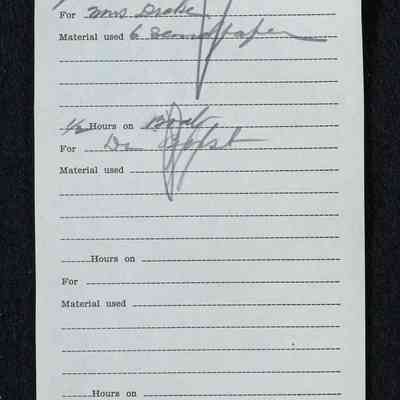 For Mrs Drake
Material used 6 sandpaper
1/2 Hours on
For Dr
Material used
Hours on
For
Material used
Hours on